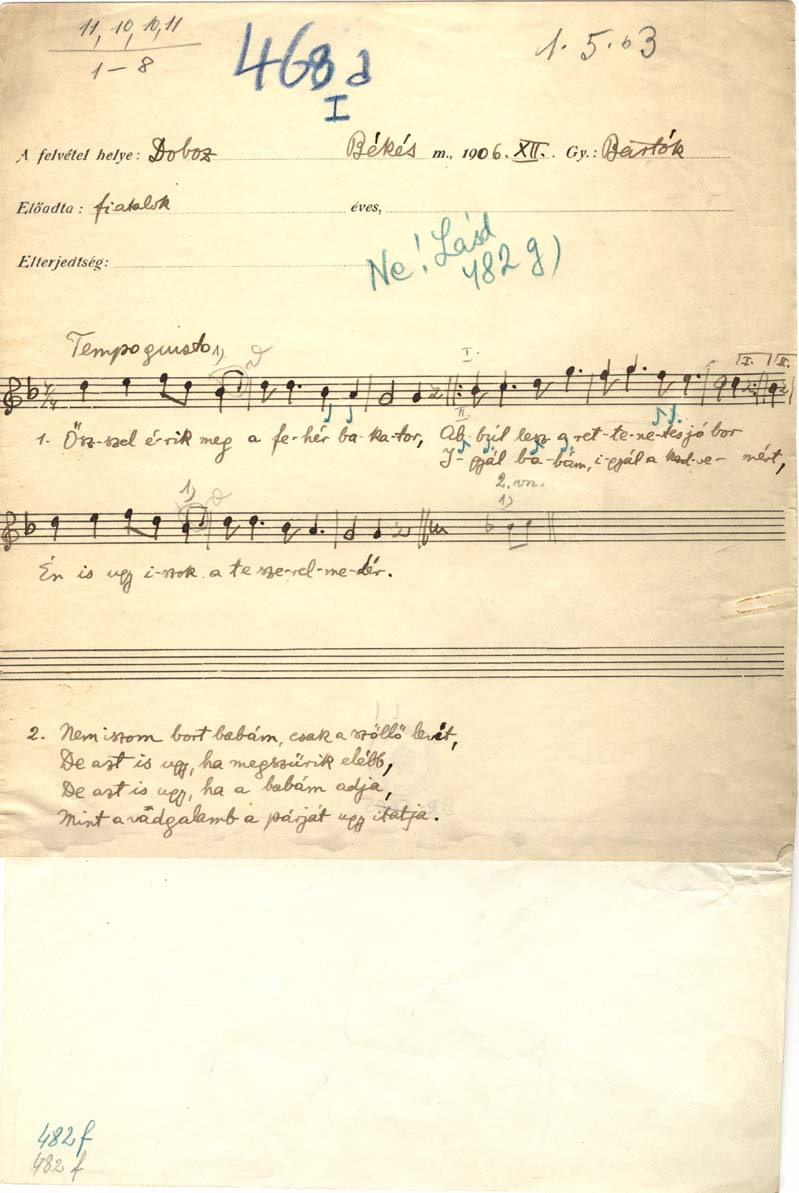 11, 10, 10, 11
1-8
468 a
I
1.5.63
A felvétel helye: Doboz Békés m., 1906. XII. Gy.: Bartók
Előadta: fiatalok éves,
Elterjedtség:
Ne! Lásd
482 g)
Tempo giusto 1)
I. I. II.
1. Ősz-szel é-rik meg a fe-hér ba-ka-tor, Ab-búl lesz a ret-te-ne-tes jó bor
II.
I-gyál ba-bám, i-gyál a ked-ve-mért,
1) 2. vsz.
1)
Én is ugy i-szok a te sze-rel-me-dér.
2. Nem iszom bort babám, csak a szőllő levét,
De azt is ugy, ha megszűrik elébb,
De azt is ugy, ha a babám adja,
Mint a vadgalamb a párját ugy itatja.
482 f
482 f